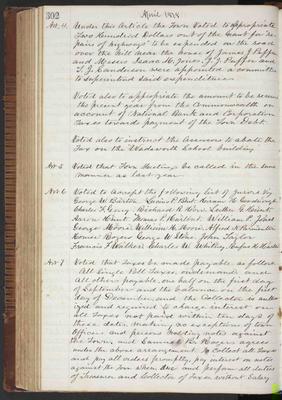 302
April 1878
Art. 4. Under this Article the Town Voted to appropriate
Two Hundred Dollars out of the Grant for re-
pairs of highways to be expended on the road
over the hill near the house of James
and Messrs Isaac H. Jones, J. F.
T. J. Sanderson were appointed a committee
to superintend said expenditure
Voted also to appropriate the amount to be recd
the present year from the Commonwealth on
account of National Bank and Corporation
Taxes towards payment of the Town Debt.
Voted also to instruct the Assessors to abate the
Tax on the Wadsworth School Building
Art 5 Voted that Town Meetings be called in the same
manner as last year
Art 6 Voted to Accept the following list of Jurors viz
George W. Burton
Charles F. Gerry
Aaron Hunt
George Moore
Homer Rogers John Taylor
Francis F. Walker Charles W. Whitney
Art 7 Voted that Taxes be made payable as follows
All Single Poll Taxes, on demand and
All others payable, one half on the first day
of September and the balance on the first
day of December, and the Collector is author-
ized and required to charge interest on
all Taxes not paid within ten days of
these dates, making an exception of Town
Officers and persons holding notes against
the Town, and Samuel B. Rogers agrees
under the above arrangement to Collect all Taxes
and pay all orders promptly, pay interest on notes
against the Town when due and perform all duties
of Treasurer and Collector of Taxes without Salary